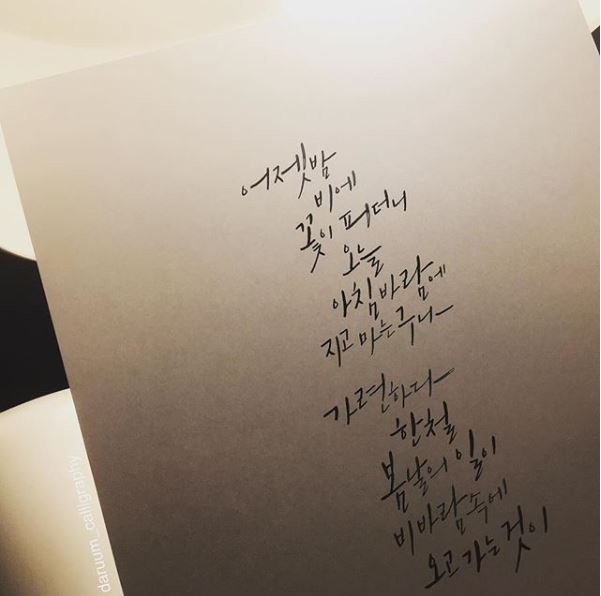 어젯밤
비에
꽃이 피더니
오늘
아침 바람에
지고 마는구나
가련하다
한철
봄날의 일이
비바람 속에
오고 가는 것이
daruum_calligraphy